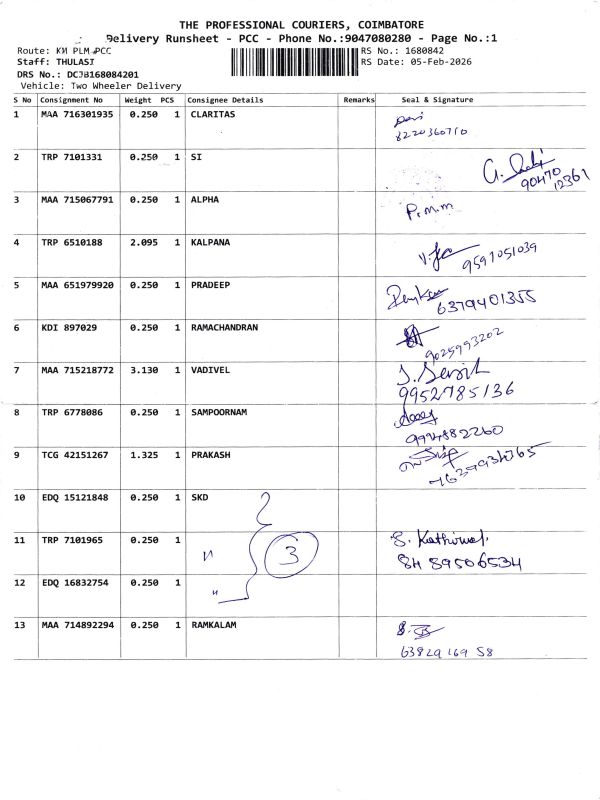 THE PROFESSIONAL COURIERS, COIMBATORE
Delivery Runsheet - PCC - Phone No.:9047080280 - Page No.:1
Route: KM PLM PCC RS No.: 1680842
Staff: THULASI RS Date: 05-Feb-2026
DRS No.: DCJB168084201
Vehicle: Two Wheeler Delivery
S No Consignment No Weight PCS Consignee Details Remarks Seal & Signature
1 MAA 716301935 0.250 1 CLARITAS
8220360710
2 TRP 7101331 0.250 1 SI
90470
12361
3 MAA 715067791 0.250 1 ALPHA P.m.m
4 TRP 6510188 2.095 1 KALPANA
9597051039
5 MAA 651979920 0.250 1 PRADEEP
6379401355
6 KDI 897029 0.250 1 RAMACHANDRAN
9025993202
7 MAA 715218772 3.130 1 VADIVEL
9952785136
8 TRP 6778086 0.250 1 SAMPOORNAM
9994882260
9 TCG 42151267 1.325 1 PRAKASH
10 EDQ 15121848 0.250 1 SKD
11 TRP 7101965 0.250 1 " 3
8489506534
12 EDQ 16832754 0.250 1 "
13 MAA 714892294 0.250 1 RAMKALAM
63829 169 58